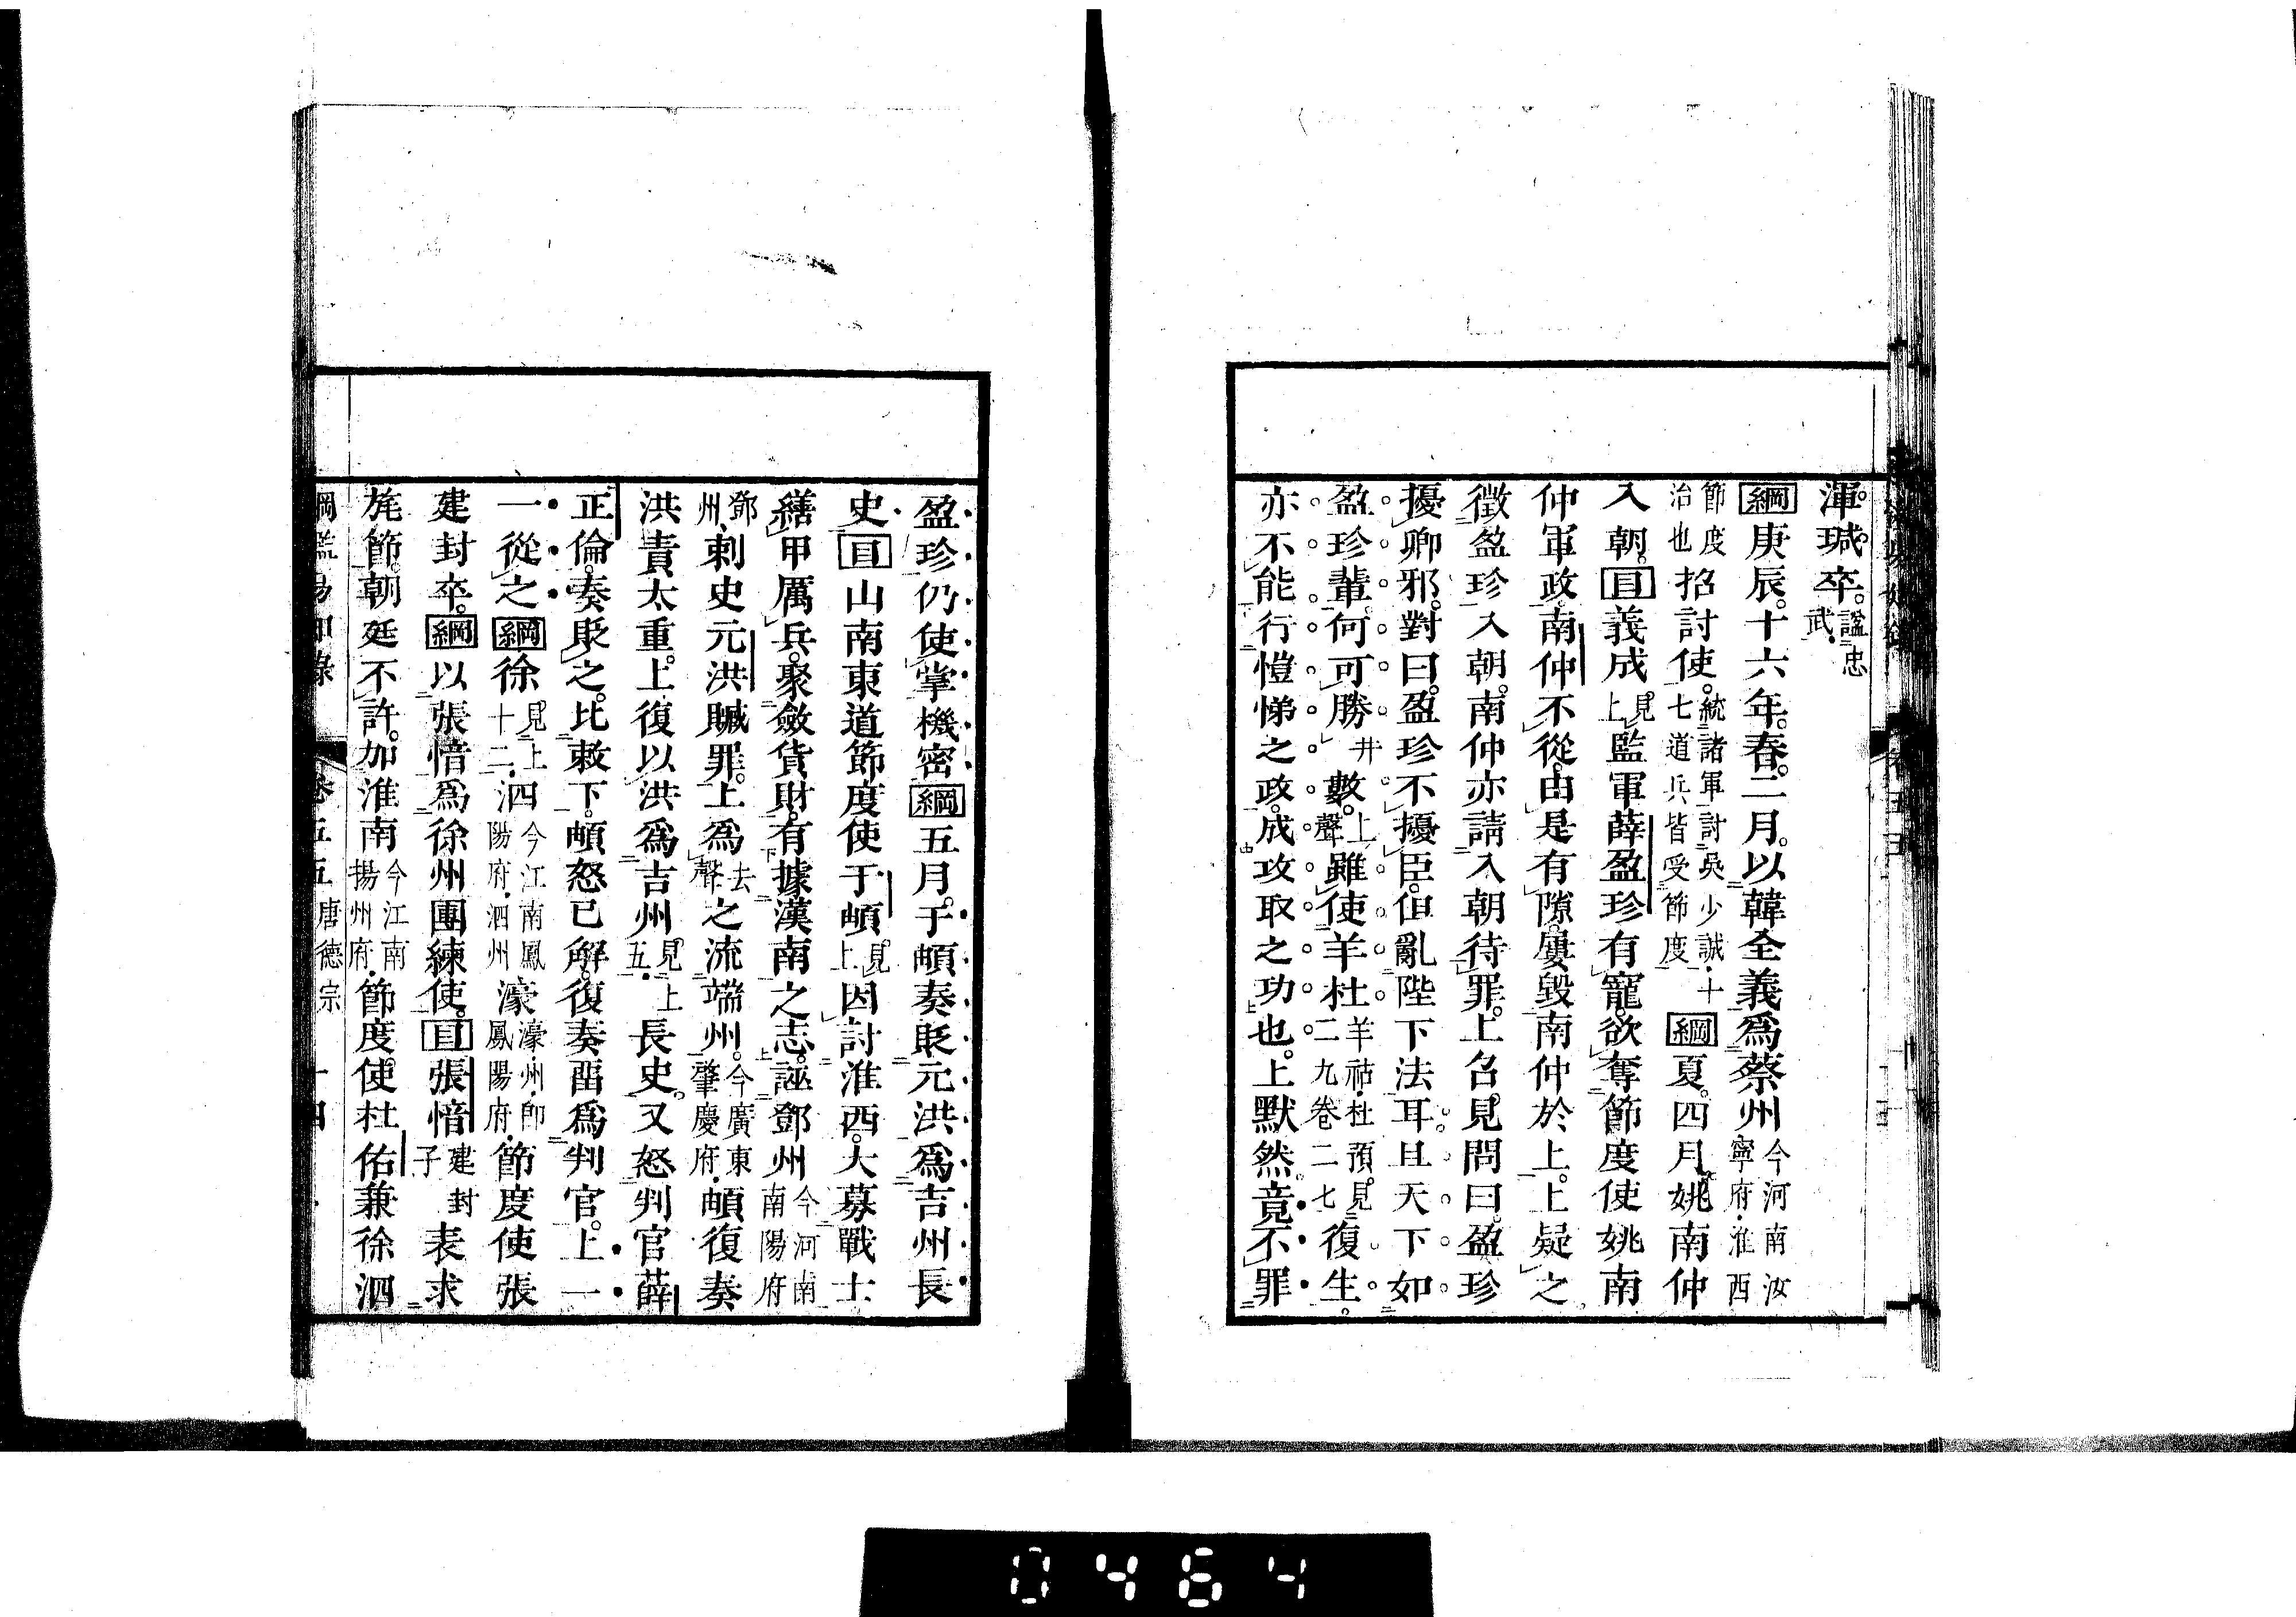 渾瑊卒。謚忠武。
綱庚辰。十六年。春。二月。以韓全義爲蔡州今河南汝寧府。淮西
節度治也招討使。統諸軍討吳少誠。十七道兵皆受節度綱夏。四月。姚南仲
入朝。目義成見上監軍薛盈珍有寵。欲奪節度使姚南
仲軍政。南仲不從。由是有隙。屢毀南仲於上。上疑之
徵盈珍入朝。南仲亦請入朝待罪。上召見問曰。盈珍
擾卿邪。對曰。盈珍不擾臣。但亂陛下法耳。且天下如
盈珍輩。何可勝升數。上聲雖使羊杜羊祜。杜預。見二九卷二七復生。
亦不能行愷悌之政。成攻取之功也。上默然。竟不罪
盈珍仍使掌機密綱五月。于頔奏貶元洪爲吉州長
史。目山南東道節度使于頔見上因討淮西。大募戰士
繕甲厲兵。聚斂貨財。有據漢南之志。誣鄧州今河南南陽府
鄧州。刺史元洪贓罪。上爲去聲之流端州。今廣東肇慶府。頔復奏
洪責太重。上復以洪爲吉州見上五。長史。又怒判官薛
正倫。奏貶之。比敕下。頔怒已解。復奏畱爲判官。上一
一從之綱徐見上十二。泗今江南鳳陽府。泗州濠濠州。卽鳳陽府。節度使張
建封卒。綱以張愔爲徐州團練使。目張愔建封子表求
旄節。朝廷不許。加淮南今江南揚州府。節度使杜佑兼徐泗
綱鑑易知錄 卷五五 唐德宗 十四
0464